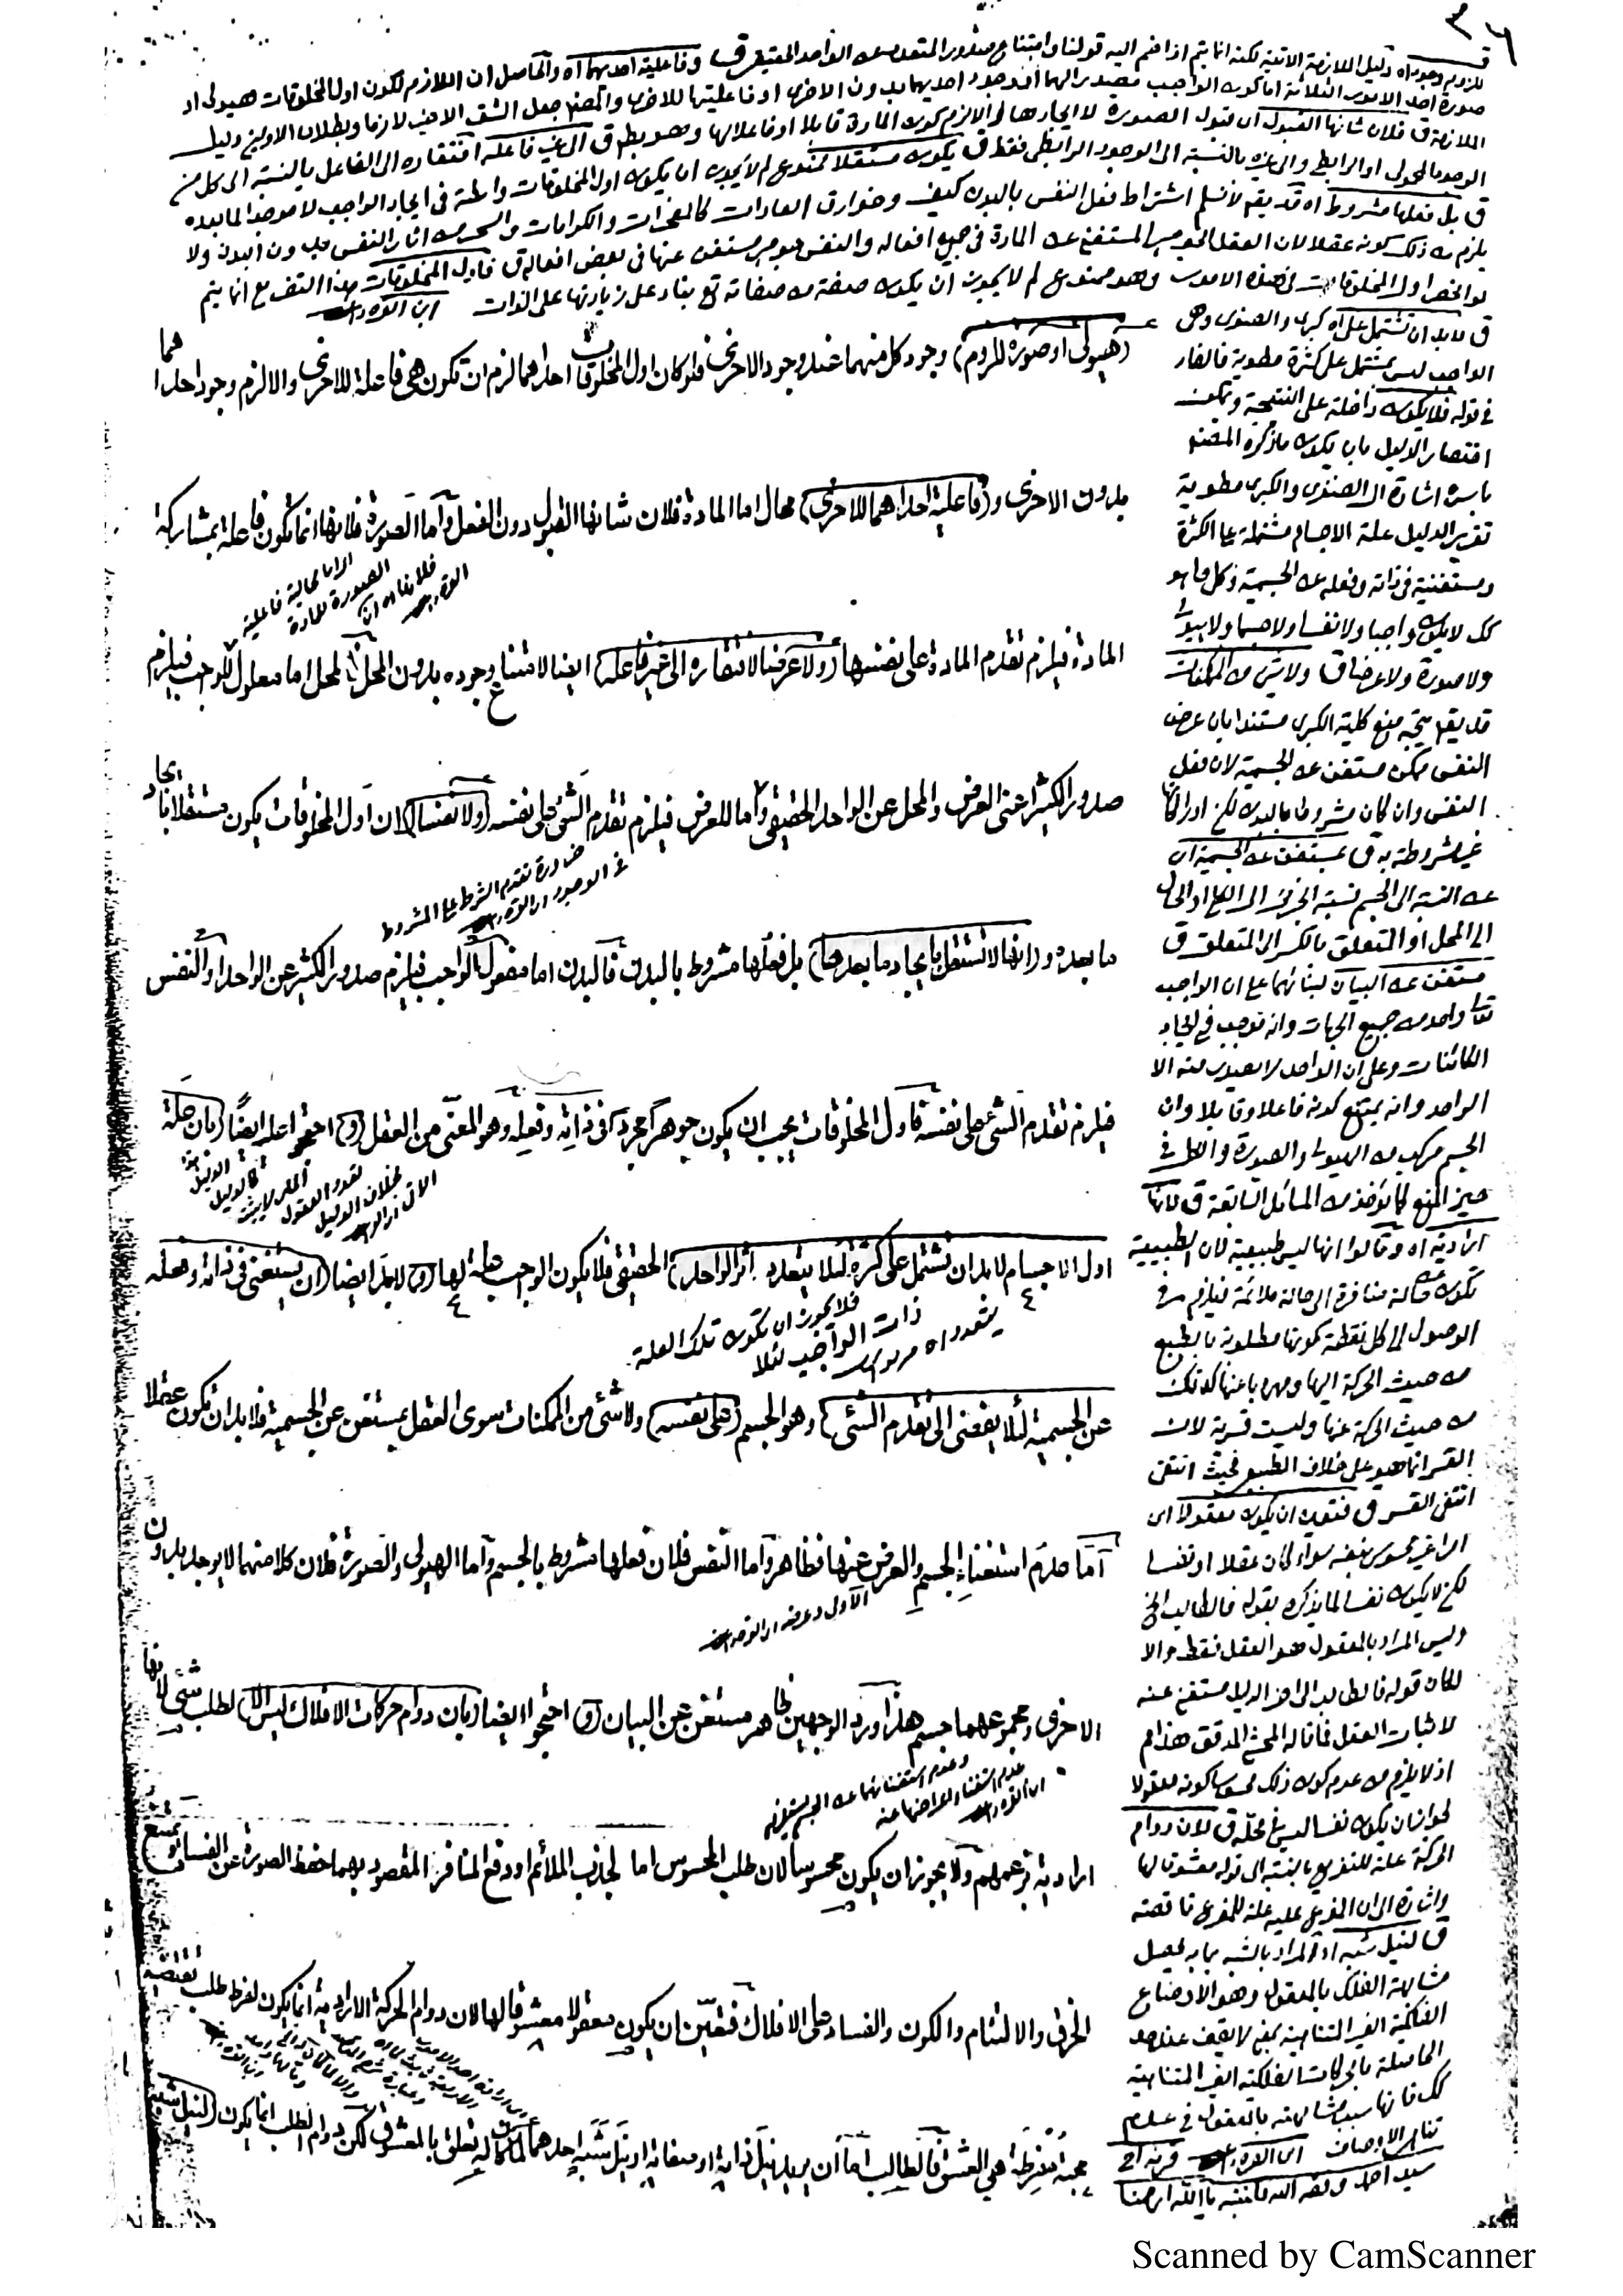 ٣٦
للزوم وجود اه دليل الملازمة الاتية لكنه انما يتم اذا ضم اليه قولنا وامتناع صدور المتعدد عن الواحد الحقيقي ق وفاعلية احديهما اه والحاصل ان اللازم لكون اول المخلوقات هيولى او
صورة احد الامور الثلاثة اما كون الواجب مصدرا لهما او وجود احديهما بدون الاخرى او فاعليتها للاخرى والمصنف جعل الشق الاخير لازما وبطلان الاولين دليل
الملازمة ق فلان شانها القبول اى قبول الصورة لا ايجادها والا لزم كون المادة قابلا وفاعلا لها وهو بط ق الى غير فاعله افتقاره الى الفاعل بالنسبة الى كل من
الوجود المحمولى او الرابطى والى غيره بالنسبة الى الوجود الرابطى فقط ق يكون مستقلا ممنوع لم لا يجوز ان يكون اول المخلوقات واسطة فى ايجاد الواجب لا موجدا لما بعده
ق بل فعلها مشروط اه قد يقم لا نسلم اشتراط فعل النفس بالبدن كيف وخوارق العادات كالمعجزات والكرامات والسحر من اثار النفس بدون البدن ولا
يلزم من ذلك كونه عقلا لان العقل الجوهر المستغنى عن المادة فى جميع افعاله والنفس جوهر مستغن عنها فى بعض افعاله ق فاول المخلوقات هذا التفريع انما يتم
لو انحصر اول المخلوقات فى هذه الامور وهو ممنوع لم لا يجوز ان يكون صفة من صفاته تع بناء على زيادتها على الذات
(هيولى او صورة للزوم) وجود كل منهما عند وجود الاخرى فلو كان اول المخلوقات احداهما لزم ان تكون هى فاعلة للاخرى والا لزم وجود احداهما
بدون الاخرى و(فاعلية احداهما للاخرى) محال اما المادة فلان شانها القبول دون الفعل واما الصورة فلانها انما تكون فاعلة بمشاركة
المادة فيلزم تقدم المادة على نفسها (ولا عرضا لافتقاره الى غير فاعله) ايضا لامتناع وجوده بدون المحل فالمحل اما معلول للواجب فيلزم
صدور الكثير اعنى العرض والمحل عن الواحد الحقيقى واما للعرض فيلزم تقدم الشئ على نفسه (ولا نفسا) لان اول المخلوقات يكون مستقلا بايجاد
ضرورة تقدم الشرط على المشروط
فى الوجود
ما بعده و(انها لا تستقل بايجاد ما بعدها) بل فعلها مشروط بالبدن فالبدن اما مفعول الواجب فيلزم صدور الكثير عن الواحد او النفس
فيلزم تقدم الشئ على نفسه فاول المخلوقات يجب ان يكون جوهرا مجردا فى ذاته وفعله وهو المعنى من العقل (و) احتجوا عليه ايضا (بان علة
اول الاجسام لابد ان تشتمل على كثرة لئلا يتعدد اثر الواحد) الحقيقى فلا يكون الواجب علة لها (و) لابد ايضا (ان يستغنى فى ذاته وفعله
فلا يجوز ان تكون تلك العلة
ذات الواجب لئلا
يتعدد اه
عن الجسمية لئلا يفضى الى تقدم الشئ) وهو الجسم (على نفسه) ولا شئ من الممكنات سوى العقل يستغنى عن الجسمية فلابد ان تكون عقلا
اما عدم استغناء الجسم والعرض عنها فظاهر واما النفس فلان فعلها مشروط بالجسم واما الهيولى والصورة فلان كلا منهما لا يوجد بدون
الاخرى ومجموعهما جسم هذا ورد الوجهين ظاهر مستغن عن البيان (و) احتجوا ايضا (بان دوام حركات الافلاك ليس الا) لطلب شئ لانها
ارادية بزعمهم ولا يجوز ان يكون محسوسا لان طلب المحسوس اما لجذب الملائم او دفع المنافر المقصود بهما حفظ الصورة عن الفساد ويمتنع
الخرق والالتئام والكون والفساد على الافلاك فتعين ان يكون معقولا معشوقا لها لان دوام الحركة الارادية انما يكون لفرط طلب تقتضيه
محبة مفرطة هى العشق فالطالب اما ان يريد نيل ذاته او صفاته او نيل شبه احدهما تعلق بالمعشوق لكن دوام الطلب انما يكون (لنيل شبه
ق لابد ان تشتمل على اه كبرى والصغرى وهى
الواجب ليس بمشتمل على كثرة مطوية فالفاء
فى قوله فلا يكون داخلة على النتيجة ويمكن
اختصار الدليل بان يكون ما ذكره المصنف
باسره اشارة الى الصغرى والكبرى مطوية
تقرير الدليل علة الاجسام مشتملة على الكثرة
ومستغنية فى ذاته وفعله عن الجسمية وكل ما هو
كك لا يكون واجبا ولا نفسا ولا جسما ولا هيولى
ولا صورة ولا عرضا ق ولا شئ من الممكنات
قد يقم يتجه منع كلية الكبرى مستندا بان عرض
النفس ممكن مستغن عن الجسمية لان فعل
النفس وان كان مشروطا بالبدن لكن ادراكاتها
غير مشروطة به ق يستغن عن الجسمية اى
عن النسبة الى الجسم نسبة الجزئى الى الكلى او الحال
الى المحل او المتعلق بالكسر الى المتعلق ق
مستغن عن البيان لبنائهما على ان الواجب
تعالى واحد من جميع الجهات وانه موجب فى ايجاد
الكائنات وعلى ان الواحد لا يصدر منه الا
الواحد وانه يمتنع كونه فاعلا وقابلا وان
الجسم مركب من الهيولى والصورة والكل فى
حيز المنع كما يؤخذ من المسائل السابقة ق لانها
ارادية اه وقالوا انها ليس طبيعية لان الطبيعية
تكون من حالة منافرة الى حالة ملائمة فيلزم فى
الوصول الى كل نقطة كونها مطلوبة بالطبع
من حيث الحركة اليها ومهروبا عنها كذلك
من حيث الحركة عنها وليست قسرية لان
القسر انما هو على خلاف الطبع فحيث انتفى
انتفى القسر ق فتعين ان يكون معقولا اى
امرا غير محسوس بنفسه سواء كان عقلا او نفسا
لكن لا يكون نفسا لما يذكره بقوله فالطالب الخ
وليس المراد بالمعقول هو العقل فقط والا
لكان قوله فالطالب الى اخر الدليل مستغنى عنه
لاثبات العقل فما قاله المحشى المدقق هذا م
اذ لا يلزم من عدم كون ذلك محسوسا كونه معقولا
لجواز ان يكون نفسا ليس فى محله ق لان دوام
الحركة علة للتفريع بالنسبة الى قوله معشوقا لها
واشارة الى ان المفرع عليه علة للمفرع ناقصة
ق لنيل شبه اه المراد بالشبه ما به يحصل
مشابهة الفلك بالمعقول وهو الاوضاع
الفلكية الغير المتناهية بمعنى لا يقف عند حد
الحاصلة بالحركات الفلكية الغير المتناهية
كك فانها سبب مشابهته بالمعقول فى عدم
تناهى الاوصاف
Scanned by CamScanner